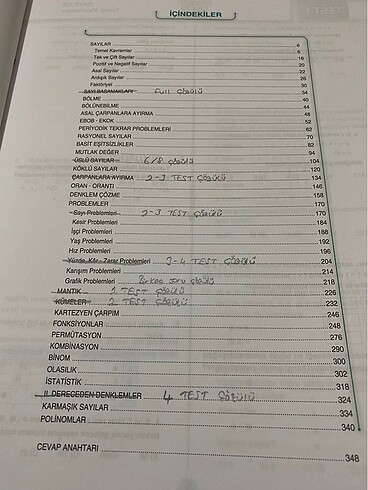 İÇİNDEKİLER
SAYILAR 6
Temel Kavramlar 6
Tek ve Çift Sayılar 16
Pozitif ve Negatif Sayılar 20
Asal Sayılar 22
Ardışık Sayılar 26
Faktöriyel 30
SAYI BASAMAKLARI Full Çözülü 34
BÖLME 40
BÖLÜNEBİLME 44
ASAL ÇARPANLARA AYIRMA 48
EBOB - EKOK 52
PERİYODİK TEKRAR PROBLEMLERİ 62
RASYONEL SAYILAR 70
BASİT EŞİTSİZLİKLER 82
MUTLAK DEĞER 94
ÜSLÜ SAYILAR 6/8 çözülü 104
KÖKLÜ SAYILAR 120
ÇARPANLARA AYIRMA 2-3 TEST ÇÖZÜLÜ 134
ORAN - ORANTI 146
DENKLEM ÇÖZME 158
PROBLEMLER 170
Sayı Problemleri 2-3 TEST ÇÖZÜLÜ 170
Kesir Problemleri 184
İşçi Problemleri 188
Yaş Problemleri 192
Hız Problemleri 196
Yüzde, Kâr - Zarar Problemleri 3-4 TEST ÇÖZÜLÜ 204
Karışım Problemleri 214
Grafik Problemleri Birkaç soru çözülü 218
MANTIK 1 TEST ÇÖZÜLÜ 226
KÜMELER 2 TEST ÇÖZÜLÜ 232
KARTEZYEN ÇARPIM 246
FONKSİYONLAR 248
PERMÜTASYON 276
KOMBİNASYON 290
BİNOM 300
OLASILIK 302
İSTATİSTİK 318
II. DERECEDEN DENKLEMLER 4 TEST ÇÖZÜLÜ 324
KARMAŞIK SAYILAR 334
POLİNOMLAR 340
CEVAP ANAHTARI 348